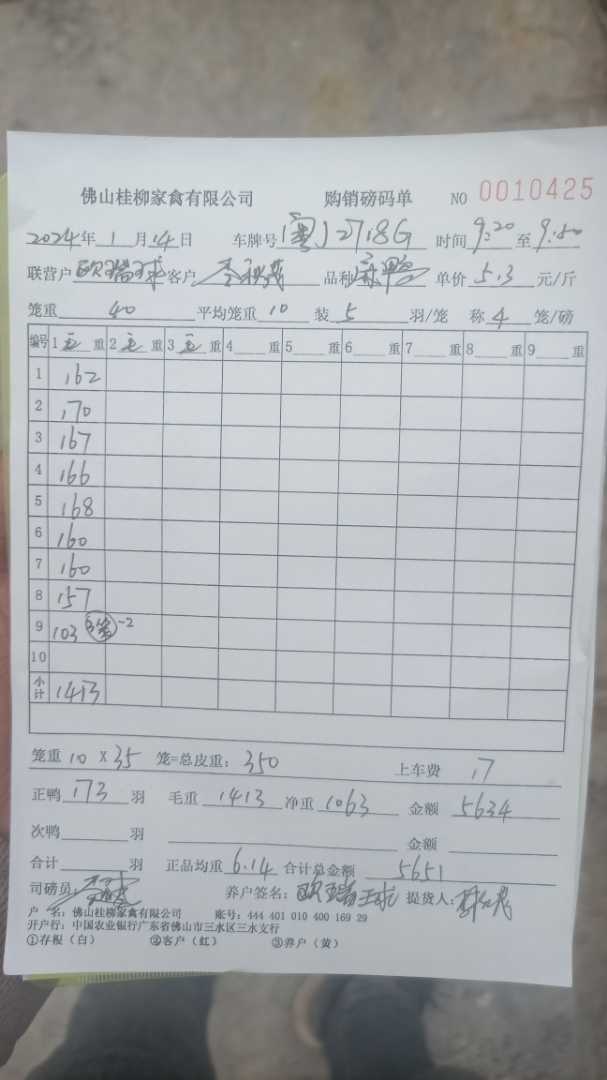 佛山桂柳家禽有限公司 购销磅码单 NO 0010425
2024年 1 月 14 日 车牌号 (粤) 2718G 时间 9:20 至 9:50
联营户 欧瑞球 客户 品种 单价 5.3 元/斤
笼重 40 平均笼重 10 装 5 羽/笼 称 4 笼/磅
编号 1 毛 重 2 毛 重 3 毛 重 4 重 5 重 6 重 7 重 8 重 9 重
1 162
2 170
3 167
4 166
5 168
6 160
7 160
8 157
9 103 3笼 -2
10
小计 1413
笼重 10 X 35 笼=总皮重: 350 上车费 17
正鸭 173 羽 毛重 1413 净重 1063 金额 5634
次鸭 羽 金额
合计 羽 正品均重 6.14 合计总金额 5651
司磅员: 养户签名: 欧瑞球 提货人:
户 名: 佛山桂柳家禽有限公司 账号: 444 401 010 400 169 29
开户行: 中国农业银行广东省佛山市三水区三水支行
①存根（白） ②客户（红） ③养户（黄）